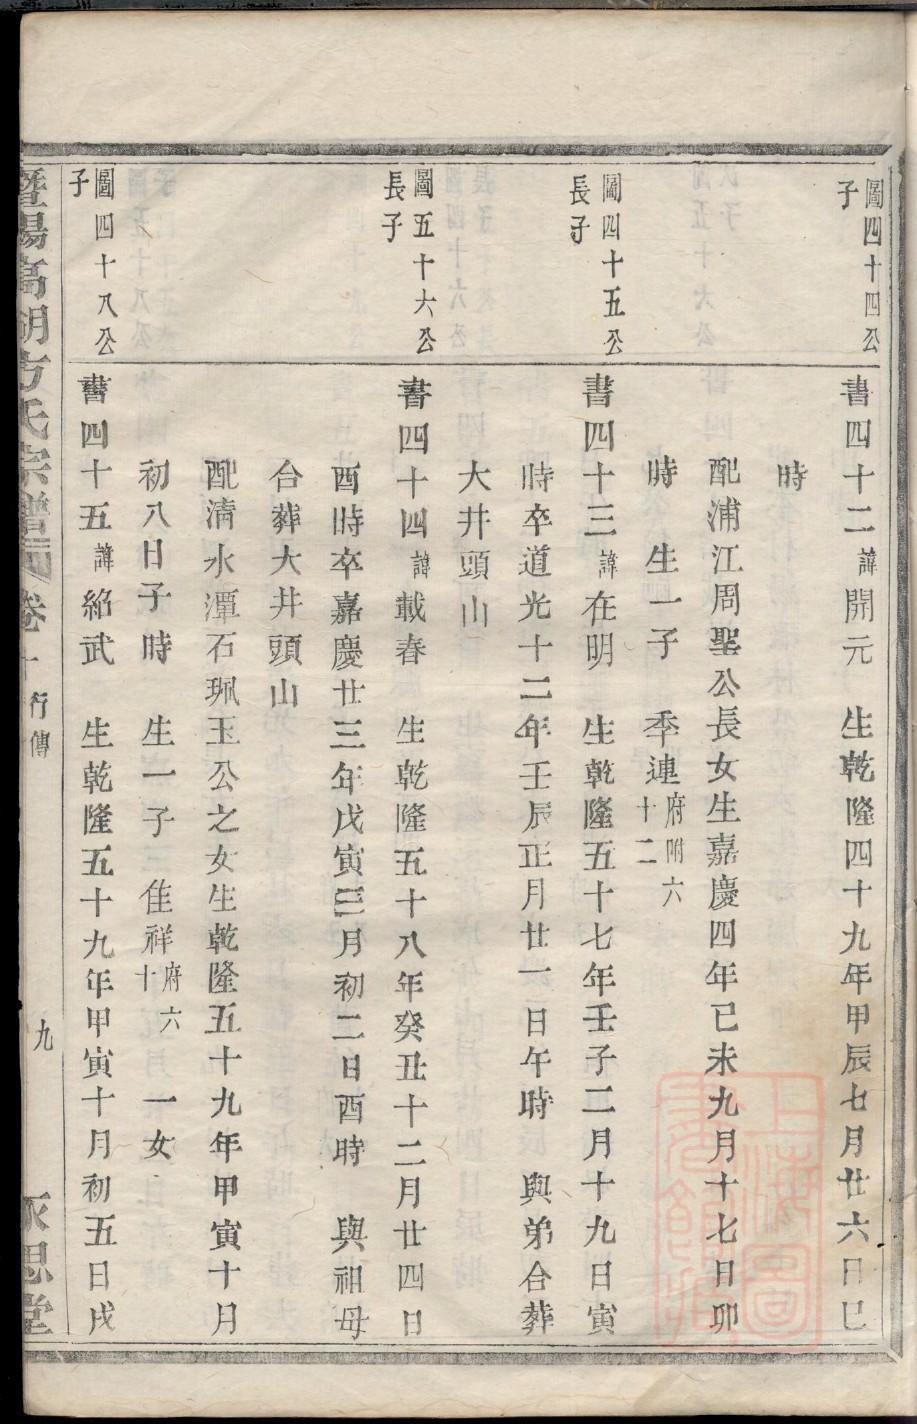 圖四十四公
子
書四十二諱開元　生乾隆四十九年甲辰七月廿六日巳
時
配浦江周聖公長女生嘉慶四年已未九月十七日卯
時　生一子　季連府附六十二
圖四十五公
長子
書四十三諱在明　生乾隆五十七年壬子二月十九日寅
時卒道光十二年壬辰正月廿一日午時　與弟合葬
大井頭山
圖五十六公
長子
書四十四諱載春　生乾隆五十八年癸丑十二月廿四日
酉時卒嘉慶廿三年戊寅三月初二日酉時　與祖母
合葬大井頭山
配清水潭石珮玉公之女生乾隆五十九年甲寅十月
初八日子時　生一子三佳祥府六十　一女
圖四十八公
子
書四十五諱紹武　生乾隆五十九年甲寅十月初五日戌
暨陽高湖方氏宗譜　卷十　行傳　九　永思堂
上海圖書館藏